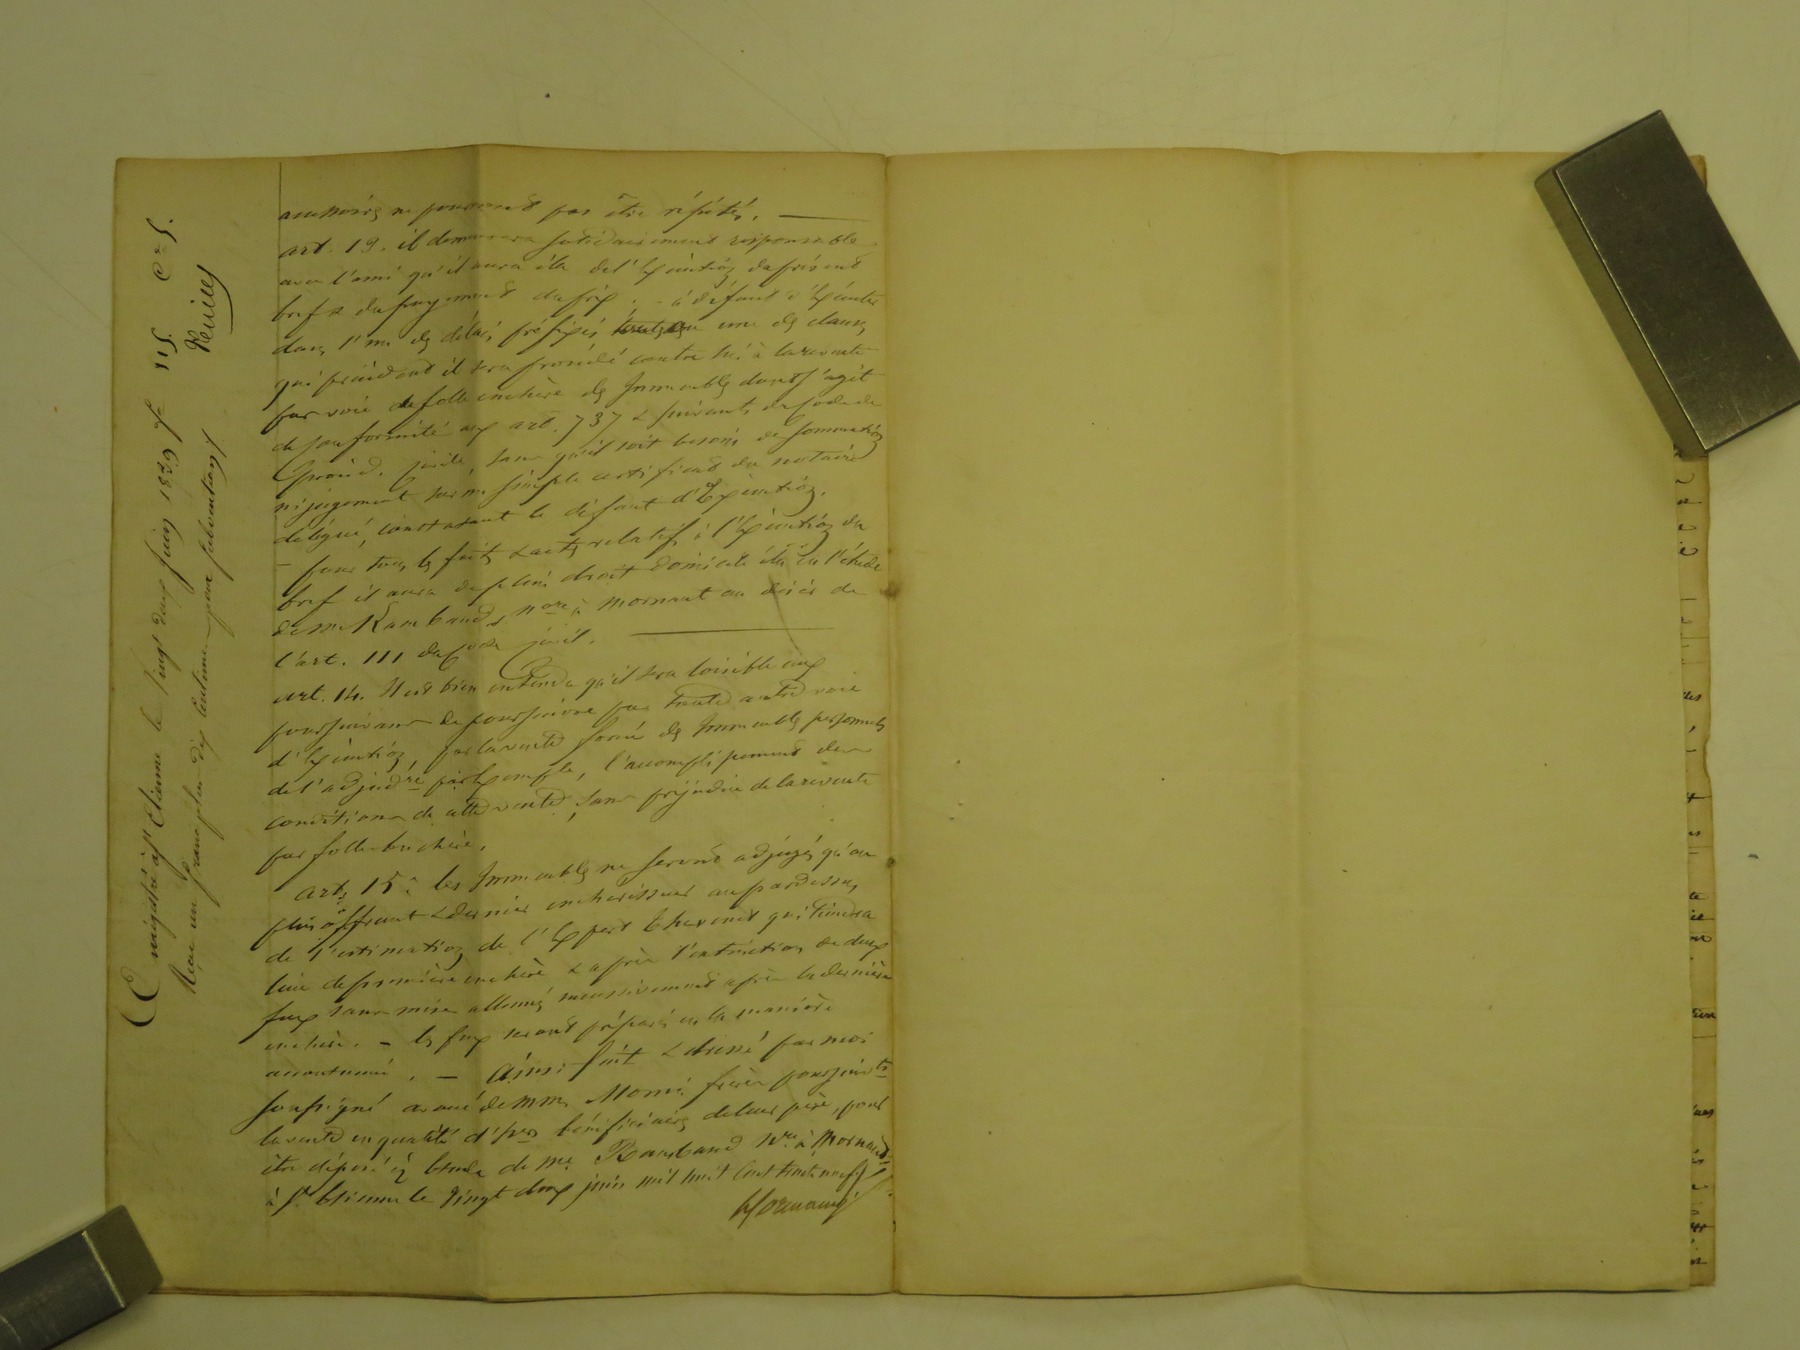 accessoires ne pourront pas être répétés.
art. 13. il demeurera solidairement responsable
avec l'ami qu'il aura élu de l'Exécution du présent
bref & du payement du prix. - à défaut d'Exécuter
dans l'un des délais préfixés une des clauses
qui précèdent il sera procédé contre lui à la revente
par voie de folle enchère des Immeubles dont s'agit
de conformité aux art. 737 & suivants du Code de
procéd. civile, sans qu'il soit besoin de sommation
ni jugement sur un simple certificat du notaire
délégué, constatant le défaut d'Exécution.
- pour tous les faits & actes relatifs à l'Exécution du
bref il aura de plein droit domicile élu en l'étude
de Me Rambaud, nore à Mornant au désir de
l'art. 111 du Code civil.
art. 14. Il est bien entendu qu'il sera loisible aux
poursuivans de poursuivre par toute autre voie
d'Exécution, par la vente forcée des Immeubles personnels
de l'adjudre par Exemple, l'accomplissement des
conditions de cette vente, sans préjudice de la revente
par folle Enchère.
art. 15. les Immeubles ne seront adjugés qu'au
plus offrant & dernier enchérisseur au pardessus
de l'estimation de l'Expert Thevenet qui tiendra
lieu de première enchère & après l'extinction de deux
feux sans mise allumés successivement après la dernière
enchère. - les feux seront préparés en la manière
accoutumée. - Ainsi fait & dressé par moi
soussigné avoué de MMrs frères poursuivts
la vente en qualité d'hers bénéficiaires de leur père, pour
être déposé en l'étude de Me Rambaud Nre à Mornant
à St Etienne le vingt deux juin mil huit Cent trente neuf
Enregistré à St Etienne le vingt deux juin 1839 fo 115 Ce 5.
Reçu un franc plus dix centimes pour subvention